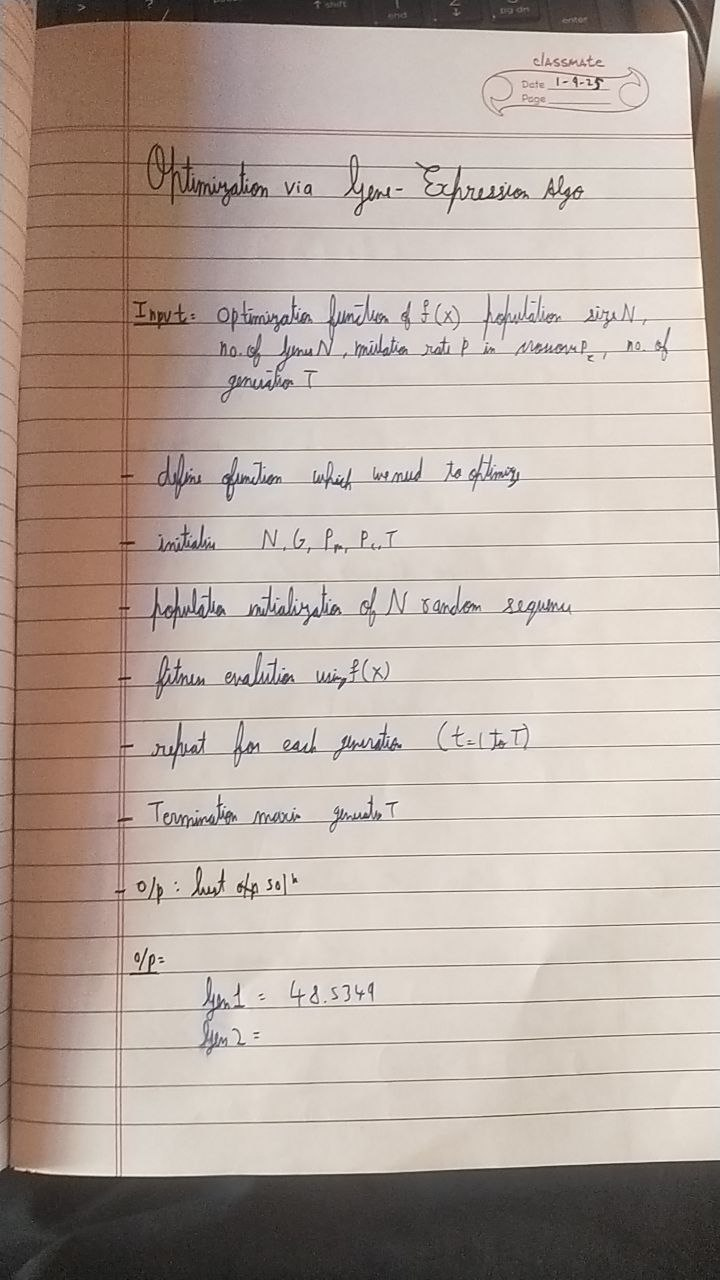 shift
end
pg dn
enter
classmate
Date 1-9-25
Page
Optimization via Gene-Expression Algo
Input: Optimization function of f(x) population size N,
no. of genes N, mutation rate P in Pc, no. of
generation T
- define function which we need to optimize
- initialize N, G, Pm, Pc, T
- population initialization of N random sequence
- fitness evalution using f(x)
- repeat for each generation (t=1 to T)
- Termination generates T
- O/p : best o/p solⁿ
O/p=
Gen1 = 48.5349
Gen2 =